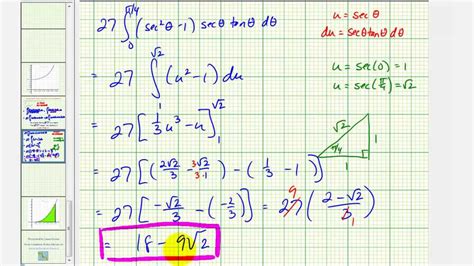 27 ∫₀^(π/4) (sec²θ -1) secθ tanθ dθ
u = secθ
du = secθ tanθ dθ
= 27 ∫₁^(√2) (u² -1) du
u = sec(0) = 1
u = sec(π/4) = √2
= 27 [1/3 u³ - u]₁^(√2)
√2 1
π/4
1
= 27 [(2√2/3 - 3√2/3·1) - (1/3 - 1)]
= 27 [-√2/3 - (-2/3)] = 9 27 (2 - √2 / 3 1)
= 18 - 9√2